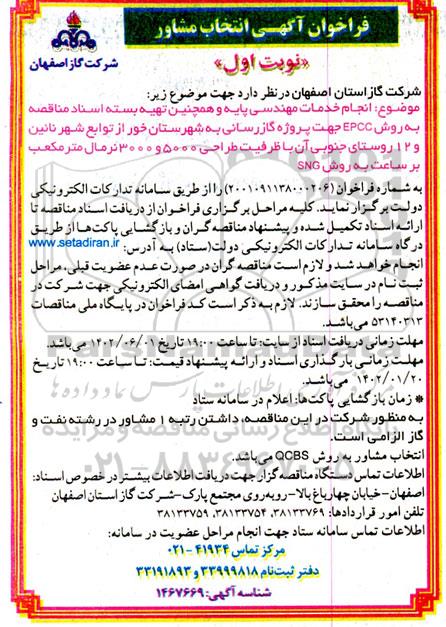 فراخوان آگهی انتخاب مشاور
شرکت گاز اصفهان
«نوبت اول»
شرکت گاز استان اصفهان در نظر دارد جهت موضوع زیر:
موضوع: انجام خدمات مهندسی پایه و همچنین تهیه بسته اسناد مناقصه
به روش EPCC جهت پروژه گازرسانی به شهرستان خور از توابع شهر نائین
و ۱۲ روستای جنوبی آن با ظرفیت طراحی ۵۰۰۰ و ۳۰۰۰ نرمال متر مکعب
بر ساعت به روش SNG
به شماره فراخوان (۲۰۰۱۰۹۱۱۳۸۰۰۰۲۰۶) را از طریق سامانه تدارکات الکترونیکی
دولت برگزار نماید. کلیه مراحل برگزاری فراخوان از دریافت اسناد مناقصه تا
ارائه اسناد تکمیل شده و پیشنهاد مناقصه گران و بازگشایی پاکت‌ها از طریق
درگاه سامانه تدارکات الکترونیکی دولت (ستاد) به آدرس: www.setadiran.ir
انجام خواهد شد و لازم است مناقصه گران در صورت عدم عضویت قبلی، مراحل
ثبت نام در سایت مذکور و دریافت گواهی امضای الکترونیکی جهت شرکت در
مناقصه را محقق سازند. لازم به ذکر است کد فراخوان در پایگاه ملی مناقصات
۵۳۱۴۰۳۱۳ می‌باشد.
مهلت زمانی دریافت اسناد از سایت: تا ساعت ۱۹:۰۰ تاریخ ۱۴۰۲/۰۶/۰۱ می‌باشد.
مهلت زمانی بارگذاری اسناد و ارائه پیشنهاد قیمت: تا ساعت ۱۹:۰۰ تاریخ
۱۴۰۲/۰۱/۲۰ می‌باشد.
* زمان بازگشایی پاکت‌ها: اعلام در سامانه ستاد
به منظور شرکت در این مناقصه، داشتن رتبه ۱ مشاور در رشته نفت و
گاز الزامی است.
انتخاب مشاور به روش QCBS می‌باشد.
اطلاعات تماس دستگاه مناقصه گزار جهت دریافت اطلاعات بیشتر در خصوص اسناد:
اصفهان-خیابان چهارباغ بالا-روبه‌روی مجتمع پارک-شرکت گاز استان اصفهان
تلفن امور قراردادها: ۳۸۱۳۳۷۶۹، ۳۸۱۳۳۷۵۴، ۳۸۱۳۳۷۵۹
اطلاعات تماس سامانه ستاد جهت انجام مراحل عضویت در سامانه:
مرکز تماس ۴۱۹۳۴-۰۲۱
دفتر ثبت‌نام ۳۳۹۹۹۸۱۸ و ۳۳۱۹۱۸۹۳
شناسه آگهی: ۱۴۶۷۶۶۹